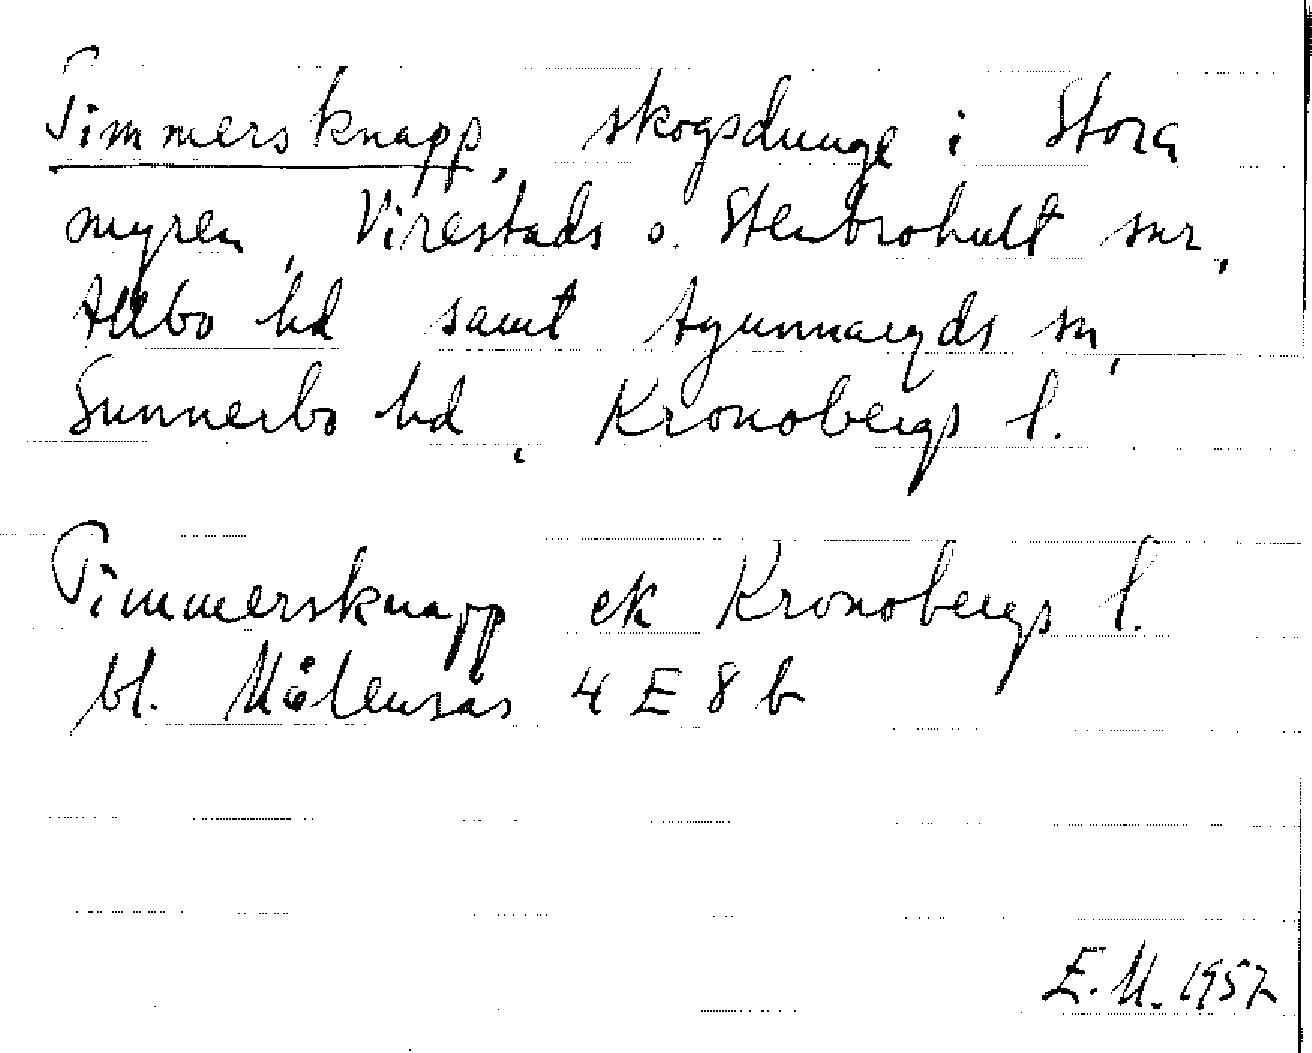 Timmersknapp, skogsdunge i Stora
myren, Virestads o. Stenbrohult snr,
Allbo hd samt Agunnaryds sn,
Sunnerbo hd, Kronobergs l.
Timmersknapp ek Kronobergs l.
bl. Målensås 4 E 8 b
E.M. 1957